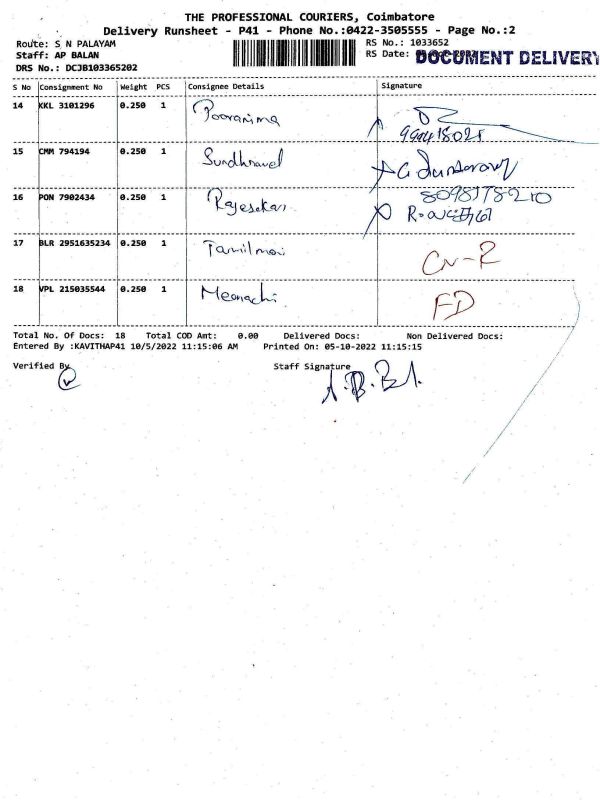 THE PROFESSIONAL COURIERS, Coimbatore
Delivery Runsheet - P41 - Phone No.:0422-3505555 - Page No.:2
Route: S N PALAYAM RS No.: 1033652
Staff: AP BALAN RS Date: DOCUMENT DELIVERY
DRS No.: DCJB103365202
S No Consignment No Weight PCS Consignee Details Signature
14 KKL 3101296 0.250 1 Pooranima
15 CMM 794194 0.250 1 G Sundararaj
16 PON 7902434 0.250 1 Rajesekar 8098178210
17 BLR 2951635234 0.250 1 Tamilmani CN-R
18 VPL 215035544 0.250 1 Meenachi FD
Total No. Of Docs: 18 Total COD Amt: 0.00 Delivered Docs: Non Delivered Docs:
Entered By :KAVITHAP41 10/5/2022 11:15:06 AM Printed On: 05-10-2022 11:15:15
Verified By Staff Signature